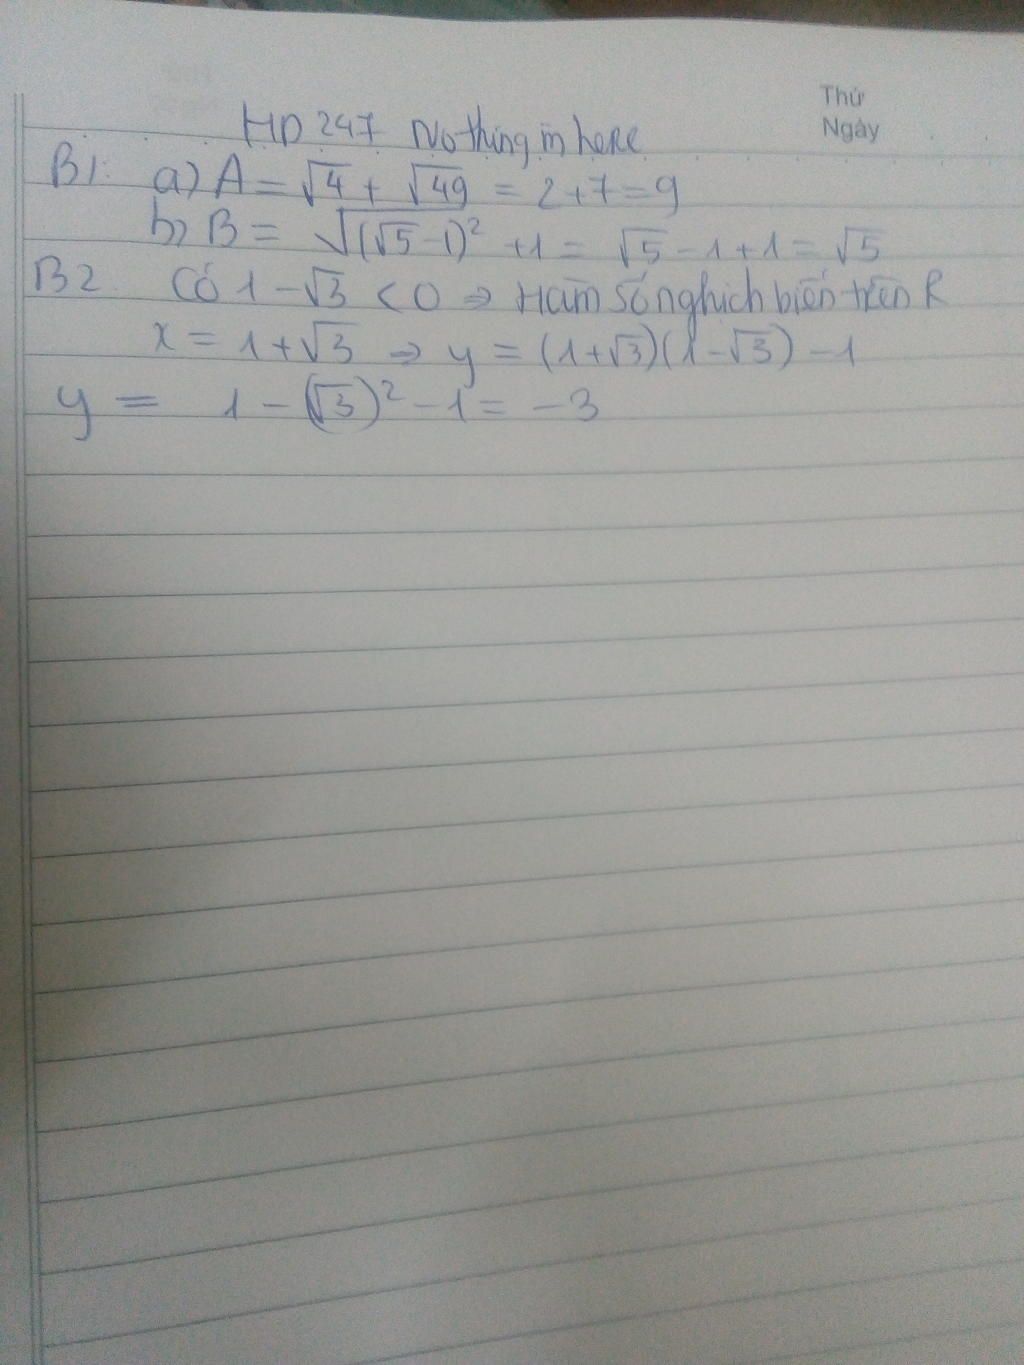 Thứ
Ngày
HD 247 Nothing in here
B1: a) A = √4 + √49 = 2+7=9
b) B = √(√5-1)² +1 = √5 -1+1 = √5
B2. Có 1-√3 <0 ⇒ Hàm số nghịch biến trên R
x = 1+√3 ⇒ y = (1+√3)(1-√3) -1
y = 1-(√3)² -1 = -3